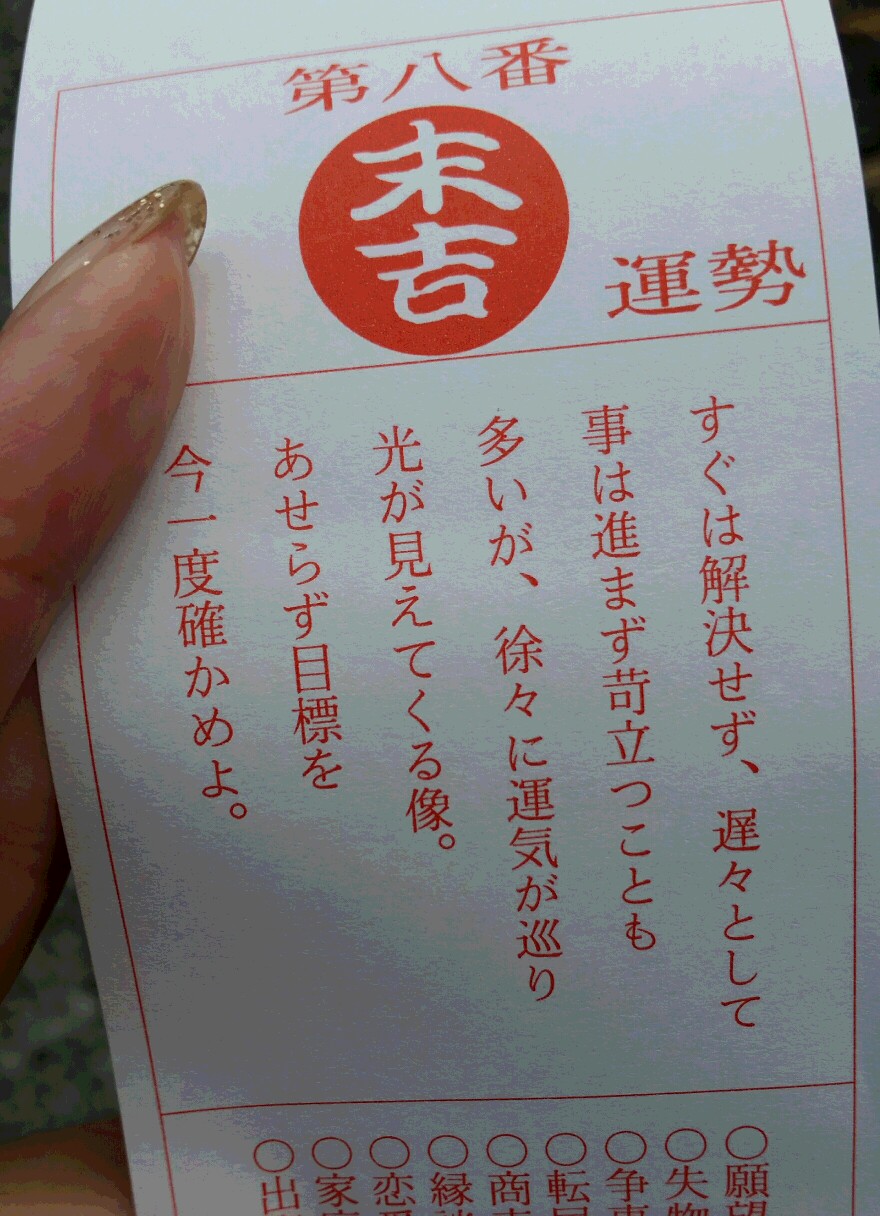 第八番
末吉
運勢
すぐは解決せず、遅々として
事は進まず苛立つことも
多いが、徐々に運気が巡り
光が見えてくる像。
あせらず目標を
今一度確かめよ。
○願望
○失物
○争事
○転居
○商売
○縁談
○恋愛
○家
○出